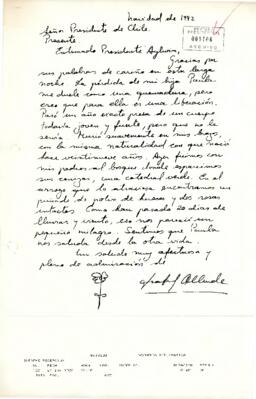 Navidad de 1992
Señor Presidente de Chile.
Presente
ARCHIVO
Estimado Presidente Aylwin,
Gracias por
sus palabras de cariño en esta larga
noche. La pérdida de mi hija Paula
me duele como una quemadura, pero
creo que para ella es una liberación.
Pasó un año exacto presa de un cuerpo
todavía joven y fuerte, pero que no le
servía. Murió suavemente en mis brazos,
con la misma naturalidad con que nació
hace veintinueve años. Ayer fuimos con
mis padres al bosque donde esparcimos
sus cenizas, una catedral verde. En el
arroyo que lo atraviesa encontramos un
puñado de polvo de huesos y dos rosas
intactas. Como han pasado 20 días de
lluvias y viento, eso nos pareció un
pequeño milagro. Sentimos que Paula
nos saluda desde la otra vida.
Un saludo muy afectuoso y
pleno de admiración de
Isabel Allende